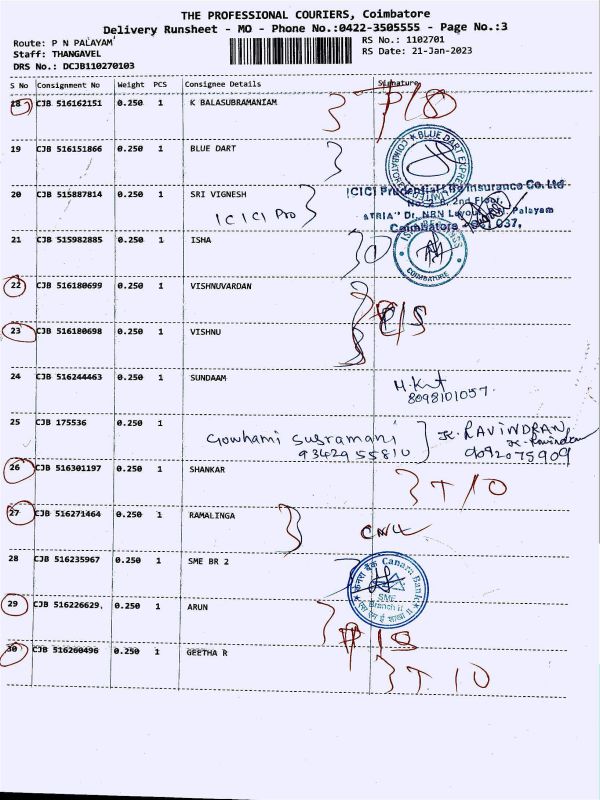 THE PROFESSIONAL COURIERS, Coimbatore
Delivery Runsheet - MO - Phone No.:0422-3505555 - Page No.:3
Route: P N PALAYAM
Staff: THANGAVEL
DRS No.: DCJB110270103
RS No.: 1102701
RS Date: 21-Jan-2023
S No Consignment No Weight PCS Consignee Details Signature
18 CJB 516162151 0.250 1 K BALASUBRAMANIAM
19 CJB 516151866 0.250 1 BLUE DART
BLUE DART EXPRESS LIMITED
20 CJB 515887814 0.250 1 SRI VIGNESH
ICICI Pro
ICICI Prudential Life Insurance Co. Ltd
2nd Floor,
"ATRIA" Dr. NRN Layout, Palayam
Coimbatore 037,
21 CJB 515982885 0.250 1 ISHA
COIMBATORE
22 CJB 516180699 0.250 1 VISHNUVARDAN
23 CJB 516180698 0.250 1 VISHNU
24 CJB 516244463 0.250 1 SUNDAAM
8098101057
25 CJB 175536 0.250 1
Gowhami Susramani K. RAVINDRAN
9342955810 K. Ravindran
9092075909
26 CJB 516301197 0.250 1 SHANKAR
27 CJB 516271464 0.250 1 RAMALINGA
28 CJB 516235967 0.250 1 SME BR 2
केनरा बैंक Canara Bank
SME
Branch II
29 CJB 516226629. 0.250 1 ARUN
30 CJB 516260496 0.250 1 GEETHA R